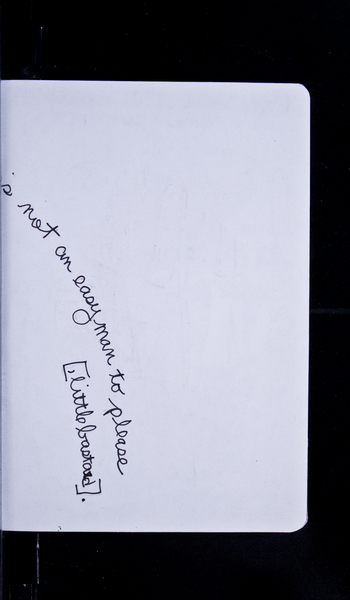 is not an easy man to please
[, little bastard].